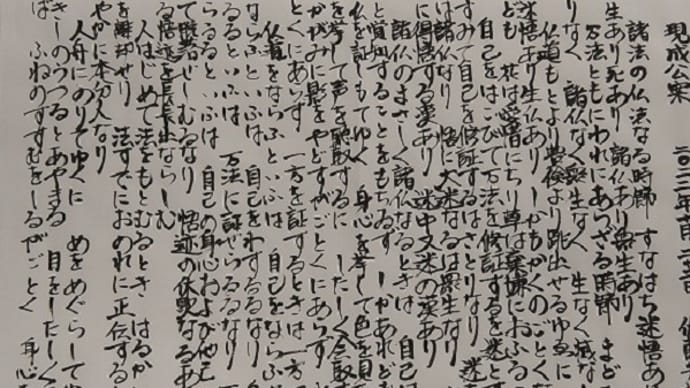 現成公案 二〇二二年
諸法の仏法なる時節 すなはち迷悟あ
生あり死あり 諸仏あり衆生あり
万法ともにわれにあらざる時節 まど
りなく 諸仏なく衆生なく 生なく滅な
仏道もとより豊倹より跳出せるゆゑに
迷悟あり生仏あり しかもかくのごとく
ども 花は愛惜にちり草は棄嫌におふる
自己をはこびて万法を修証するを迷とす
すみて自己を修証するはさとりなり 迷
は諸仏なり 悟に大迷なるは衆生なり
に得悟する漢あり 迷中又迷の漢あり
諸仏のまさしく諸仏なるときは 自己は
と覚知することをもちゐず しかあれども
仏を証しもてゆく 身心を挙して色を見
を挙して声を聴取するに したしく会取
かがみに影をやどすがごとくにあらず
とくにあらず 一方を証するときは一方
仏道をならふといふは 自己をならふ
ならふといふは 自己をわするるなり
るるといふは 万法に証せらるるなり
らるるといふは 自己の身心および他己
て脱落せしむるなり 悟迹の休歇なるあ
る悟迹を長長出ならしむ
人はじめて法をもとむるとき はるか
を離却せり 法すでにおのれに正伝する
やかに本分人なり
人舟にのりてゆくに めをめぐらして
きしのうつるとあやまる 目をしたしく
ば ふねのすすむをしるがごとく 身心を